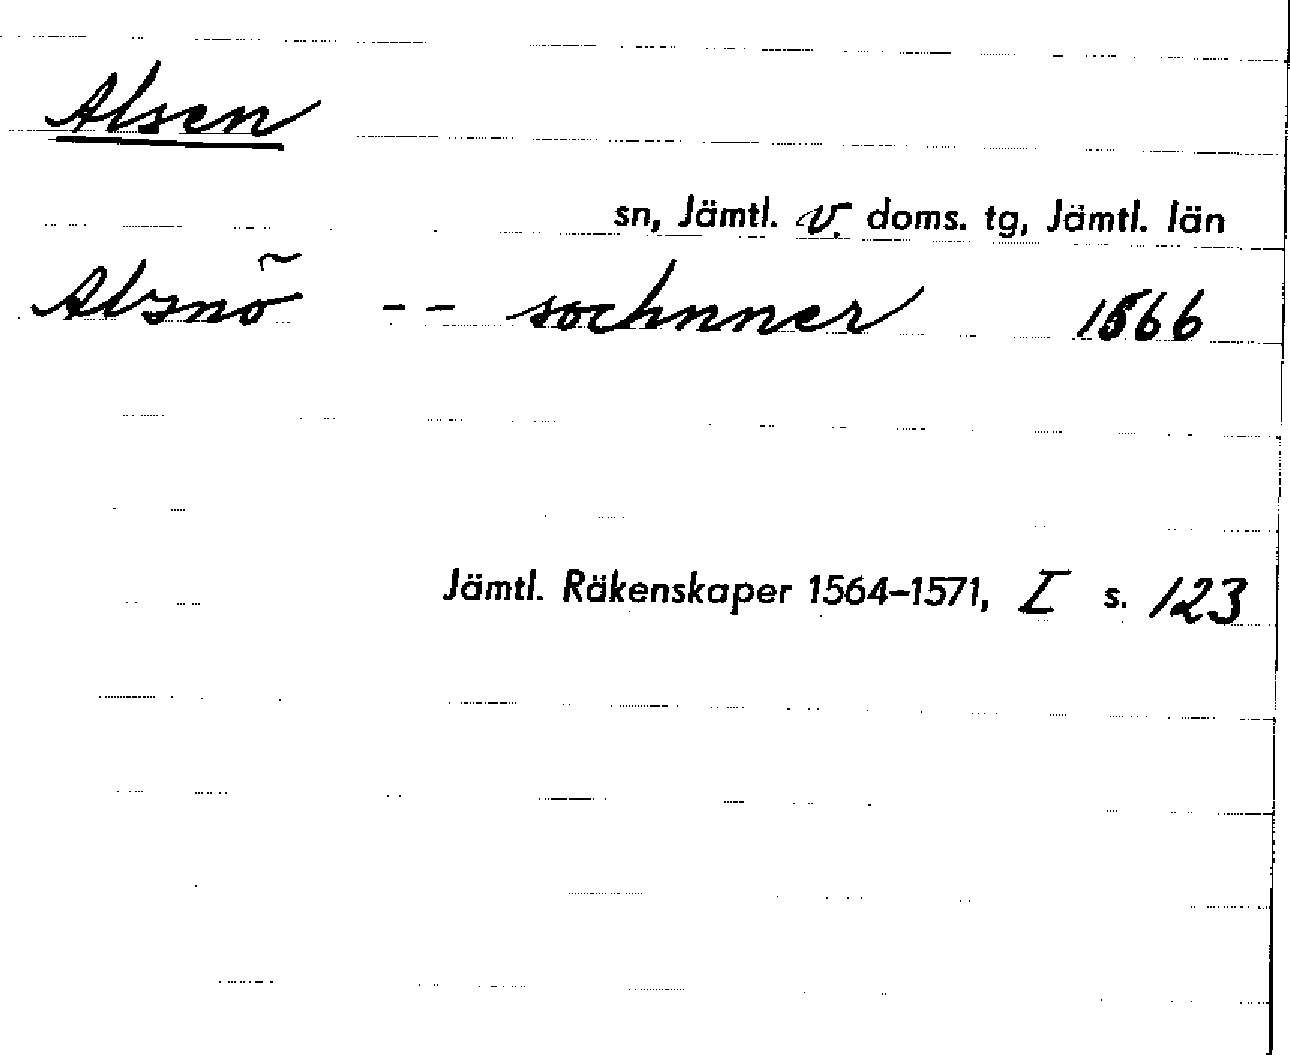 Alsen
sn, Jämtl. v. doms. tg, Jämtl. län
Alsnõ -- sochnner 1566
Jämtl. Räkenskaper 1564-1571, I s. 123